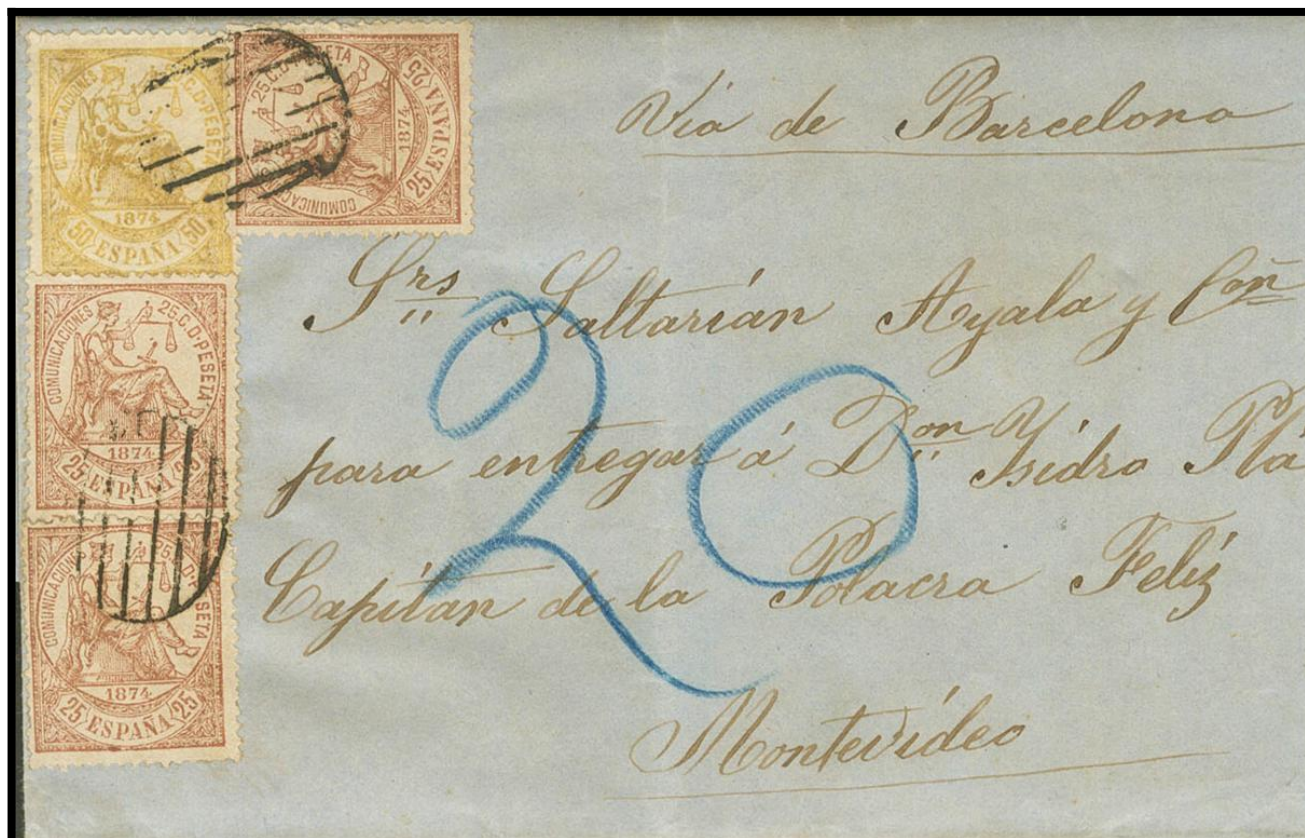 COMUNICACIONES 50 C. D PESETA
1874
50 ESPAÑA 50
COMUNICACIONES 25 C. D PESETA
1874
25 ESPAÑA 25
COMUNICACIONES 25 C. D PESETA
1874
25 ESPAÑA 25
COMUNICACIONES 25 C. D PESETA
1874
25 ESPAÑA 25
Via de Barcelona
Srs Saltarián Ayala y Cōn
para entregar á Don Ysidro Plá
Capitan de la Polacra Feliz
Montevideo
20